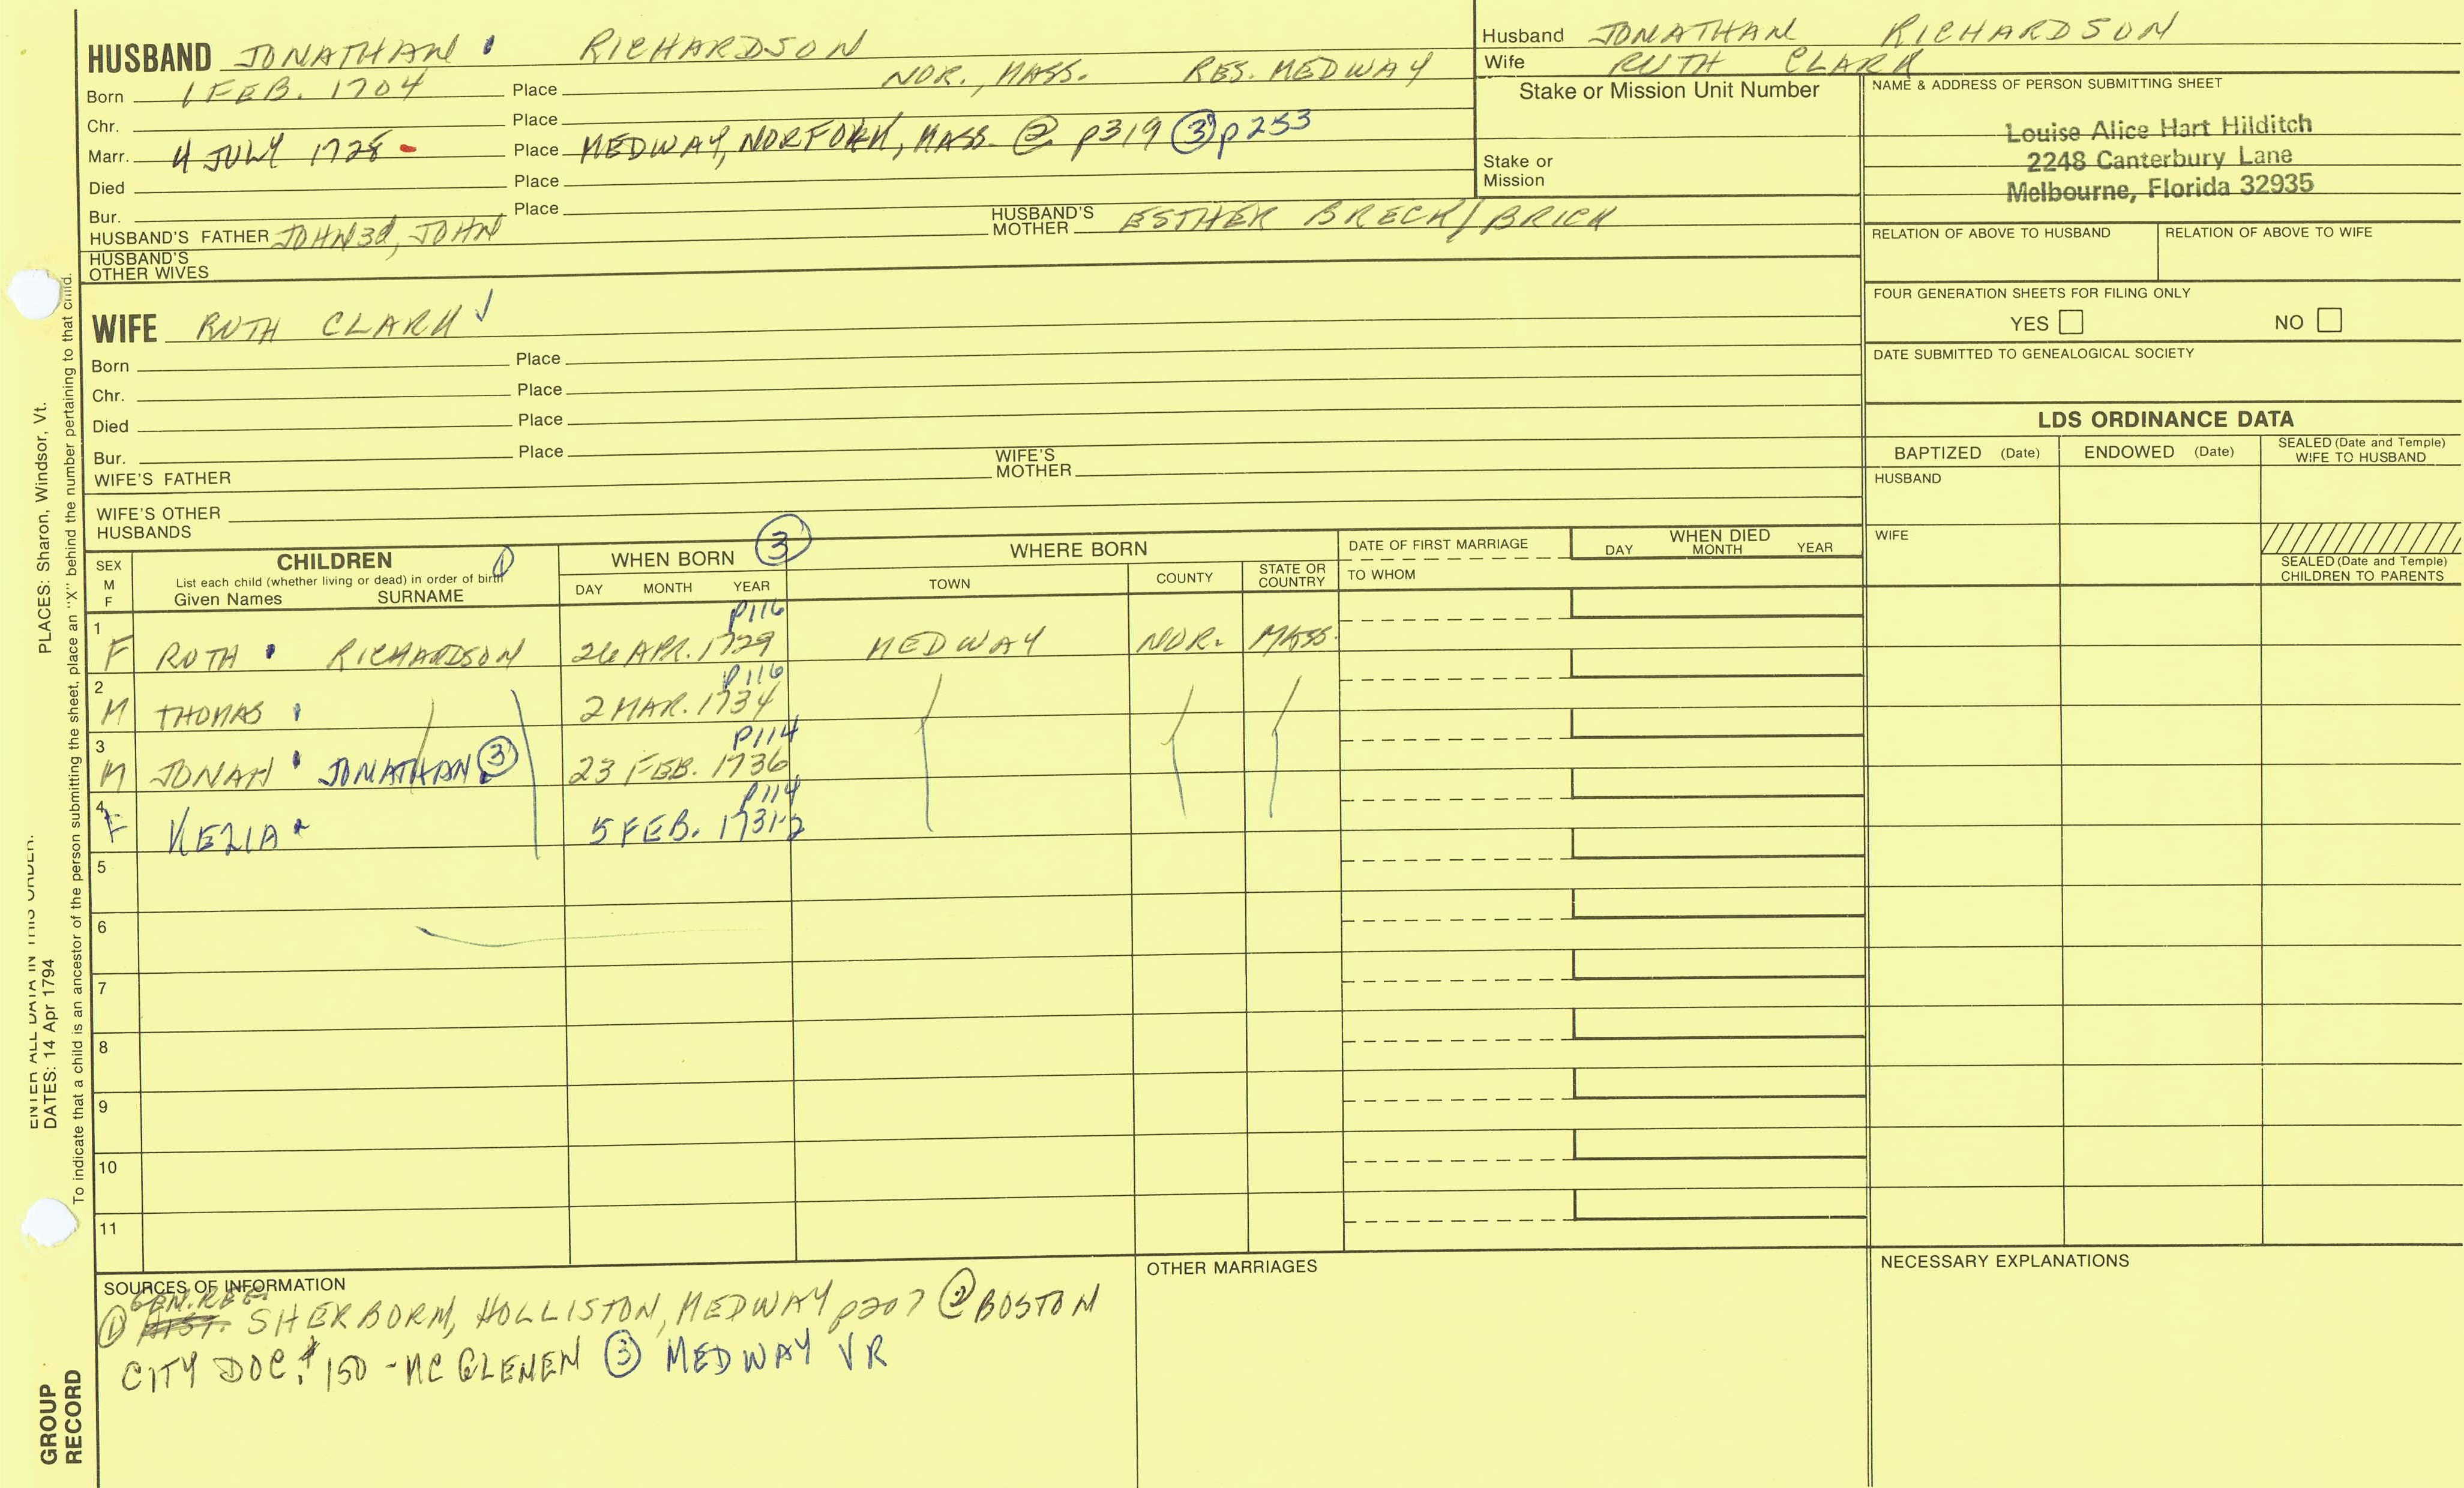 HUSBAND JONATHAN RICHARDSON
Born 1 FEB. 1704 Place NOR., MASS. RES. MEDWAY
Chr. Place
Marr. 4 JULY 1728 - Place MEDWAY, NORFORK, MASS. ② p319 ③ p253
Died Place
Bur. Place
HUSBAND'S FATHER JOHN 3d, JOHN HUSBAND'S MOTHER ESTHER BRECK/BRICK
HUSBAND'S OTHER WIVES
WIFE RUTH CLARK ✓
Born Place
Chr. Place
Died Place
Bur. Place
WIFE'S FATHER WIFE'S MOTHER
WIFE'S OTHER HUSBANDS
Husband JONATHAN RICHARDSON
Wife RUTH CLARK
Stake or Mission Unit Number
Stake or Mission
NAME & ADDRESS OF PERSON SUBMITTING SHEET
Louise Alice Hart Hilditch
2248 Canterbury Lane
Melbourne, Florida 32935
RELATION OF ABOVE TO HUSBAND RELATION OF ABOVE TO WIFE
FOUR GENERATION SHEETS FOR FILING ONLY
YES NO
DATE SUBMITTED TO GENEALOGICAL SOCIETY
LDS ORDINANCE DATA
BAPTIZED (Date) ENDOWED (Date) SEALED (Date and Temple) WIFE TO HUSBAND
HUSBAND
WIFE
SEALED (Date and Temple) CHILDREN TO PARENTS
SEX M F
CHILDREN ①
List each child (whether living or dead) in order of birth
Given Names SURNAME
WHEN BORN ③
DAY MONTH YEAR
WHERE BORN
TOWN COUNTY STATE OR COUNTRY
DATE OF FIRST MARRIAGE
TO WHOM
WHEN DIED
DAY MONTH YEAR
p116
1 F RUTH RICHARDSON 26 APR. 1729 MEDWAY NOR. MASS.
p116
2 M THOMAS 2 MAR. 1734
p114
3 M JONAH JONATHAN ③ 23 FEB. 1736
p114
4 F KEZIA 5 FEB. 1731-2
5
6
7
8
9
10
11
SOURCES OF INFORMATION
GEN. REG.
① HIST. SHERBORN, HOLLISTON, MEDWAY p207 ② BOSTON
CITY DOC. # 150 - MC GLENEN ③ MEDWAY VR
OTHER MARRIAGES
NECESSARY EXPLANATIONS
PLACES: Sharon, Windsor, Vt.
ENTER ALL DATA IN THIS ORDER:
DATES: 14 Apr 1794
To indicate that a child is an ancestor of the person submitting the sheet, place an "X" behind the number pertaining to that child.
GROUP
RECORD